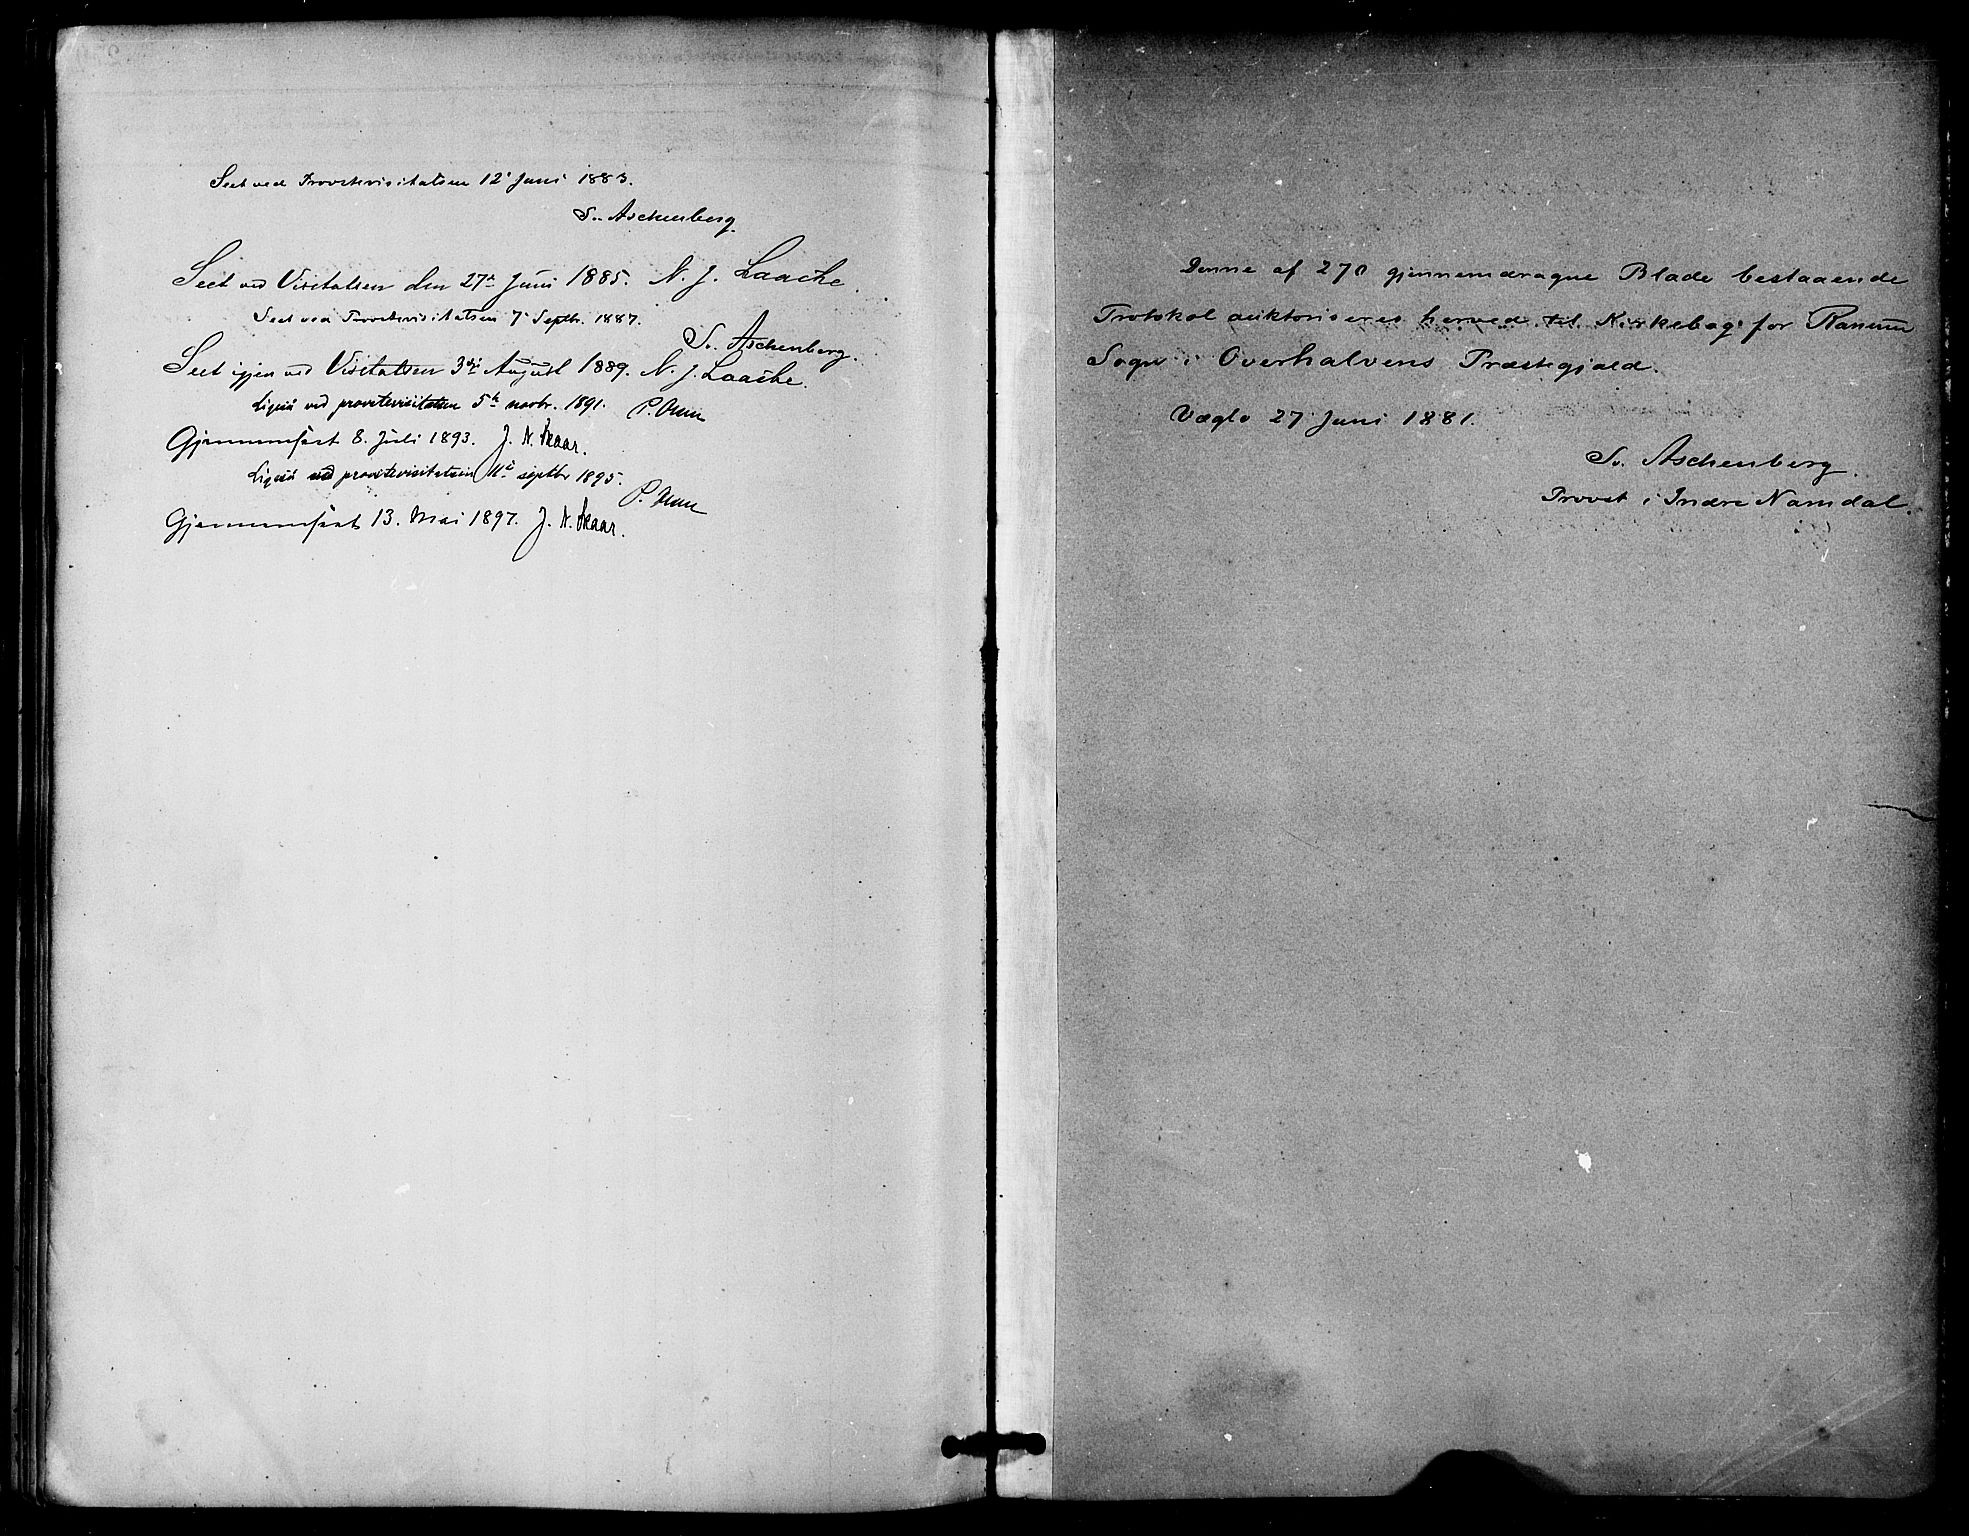 Seet ved Provstevisitatsen 12' Juni 1883.
Sv. Aschenberg.
Seet ved Visitatsen den 27de Juni 1885. N. J. Laache.
Seet ved Provstevisitatsen 7' Septb. 1887.
Sv. Aschenberg.
Seet igjen ved Visitatsen 3die August 1889. N. J. Laache.
Ligesaa ved provstevisitatsen 5te novbr. 1891. P.
Gjennemseet 8. Juli 1893. J. N. Skaar.
Ligesaa ved provstevisitatsen septbr 1895.
P.
Gjennemseet 13. Mai 1897. J. N. Skaar.
Denne af 270 gjennemdragne Blade bestaaende
Protokol auktoriseres herved til Kirkebog for Ranum
Sogn i Overhalvens Præstegjæld.
27 Juni 1881.
Sv. Aschenberg.
Provst i Indre Namdal.